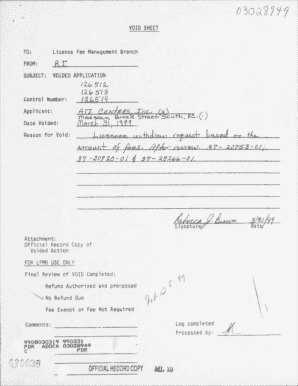 03028949
VOID SHEET
TO: License Fee Management Branch
FROM: RI
SUBJECT: VOIDED APPLICATION
126512
126513
Control Number: 126514
Applicant: ATI Centres, Inc. (2)
Broad Street South, (1)
Date Voided: March 31, 1999
Reason for Void: Licensee withdrew request based on the
amount of fees. After review 37-20753-01,
37-20720-01 & 37-28266-01.
Rebecca J Brown 3/31/99
Signature Date
Attachment:
Official Record Copy of
Voided Action
FOR LFMB USE ONLY
Final Review of VOID Completed:
Refund Authorized and processed
No Refund Due
Fee Exempt or Fee Not Required
Comments: Log completed
Processed by:
9908030319 990331
PDR ADOCK 03028949
C PDR
OFFICIAL RECORD COPY ML 10